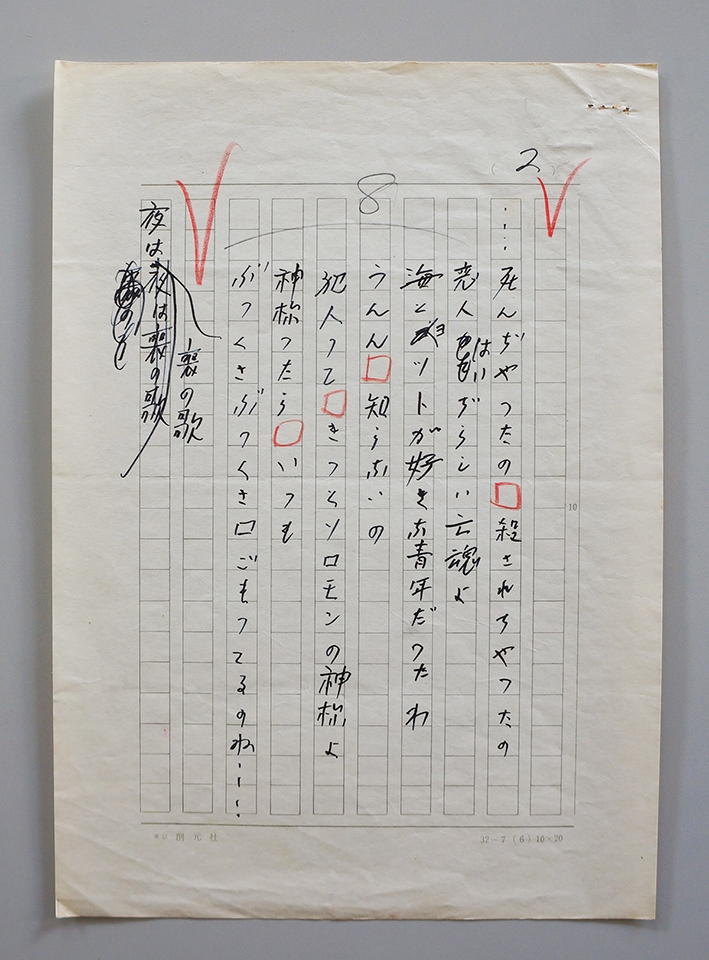 2
8
……死んぢやつたの□殺されちやつたの
恋人はいぢらしい亡魂よ
海とヨットが好きな青年だつたわ
うんん□知らないの
犯人つて□きつとソロモンの神様よ
神様つたら□いつも
ぶつくさぶつくさ口ごもつてるのね……
の歌
夜は
の歌
10
創元社
32-7 (6) 10×20